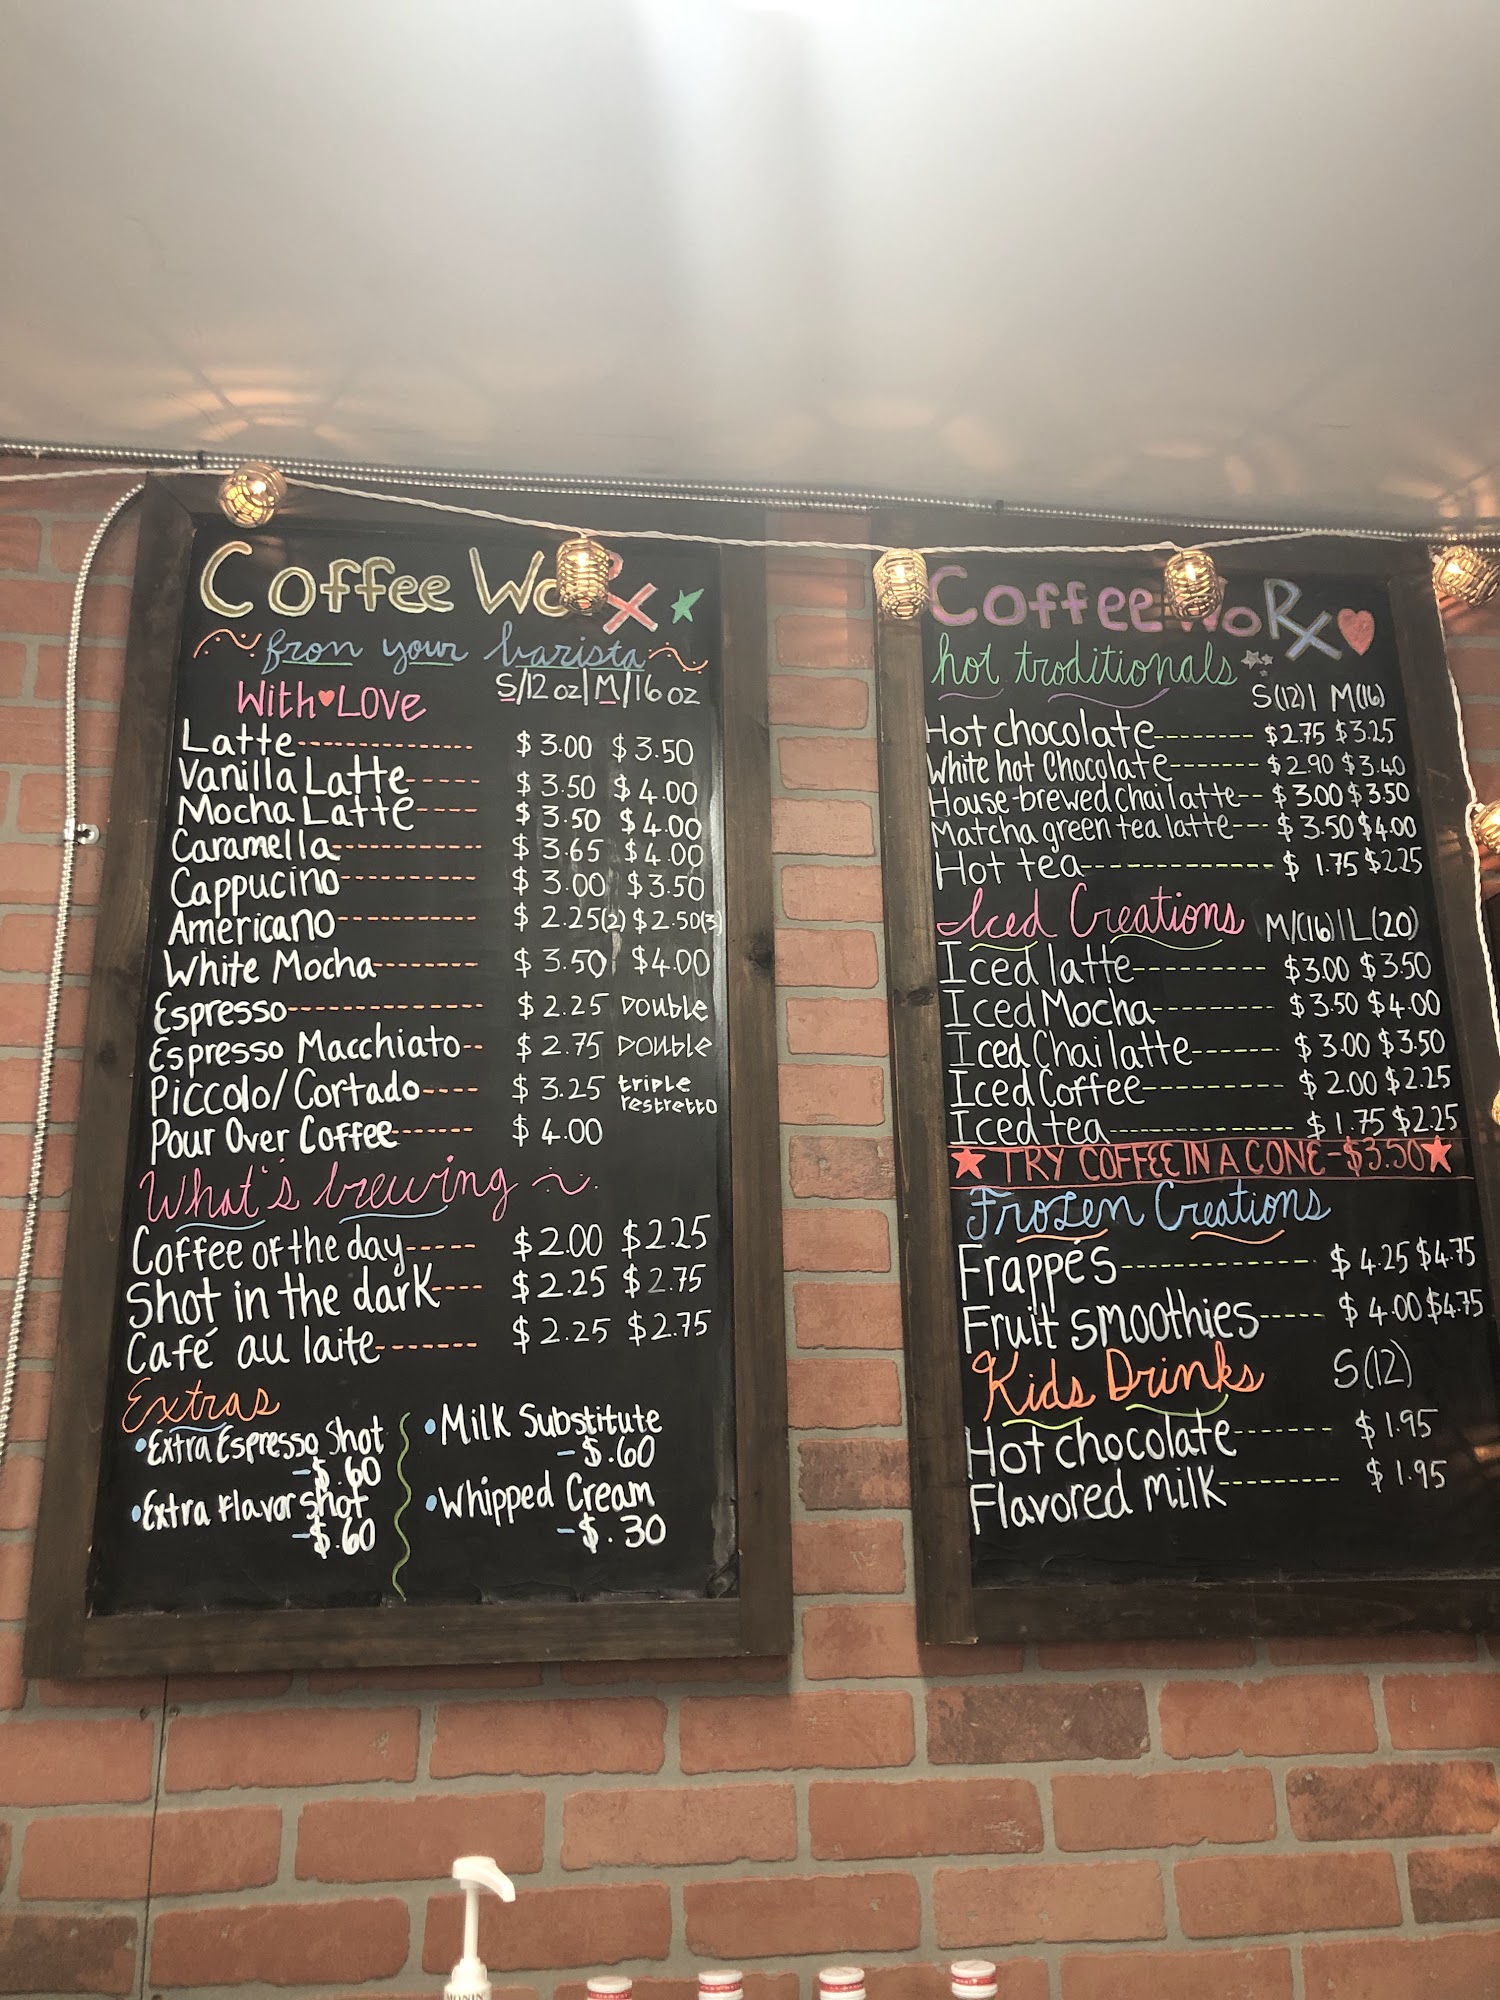 Coffee WoRx
from your barista
With LOVE S/12 oz | M/16 oz
Latte $3.00 $3.50
Vanilla Latte $3.50 $4.00
Mocha Latte $3.50 $4.00
Caramella $3.65 $4.00
Cappucino $3.00 $3.50
Americano $2.25(2) $2.50(3)
White Mocha $3.50 $4.00
Espresso $2.25 Double
Espresso Macchiato $2.75 Double
Piccolo/Cortado $3.25 triple restretto
Pour Over Coffee $4.00
What's brewing
Coffee of the day $2.00 $2.25
Shot in the dark $2.25 $2.75
Café au laite $2.25 $2.75
Extras
Extra Espresso Shot
-$.60
Extra Flavor shot
-$.60
Milk Substitute
-$.60
Whipped Cream
-$.30
Coffee WoRx
hot traditionals
S(12) | M(16)
Hot chocolate $2.75 $3.25
White hot Chocolate $2.90 $3.40
House-brewed chai latte $3.00 $3.50
Matcha green tea latte $3.50 $4.00
Hot tea $1.75 $2.25
Iced Creations M/(16) | L(20)
Iced latte $3.00 $3.50
Iced Mocha $3.50 $4.00
Iced Chai latte $3.00 $3.50
Iced Coffee $2.00 $2.25
Iced tea $1.75 $2.25
TRY COFFEE IN A CONE-$3.50
Frozen Creations
Frappés $4.25 $4.75
Fruit smoothies $4.00 $4.75
Kids Drinks S(12)
Hot chocolate $1.95
Flavored milk $1.95
MONIN